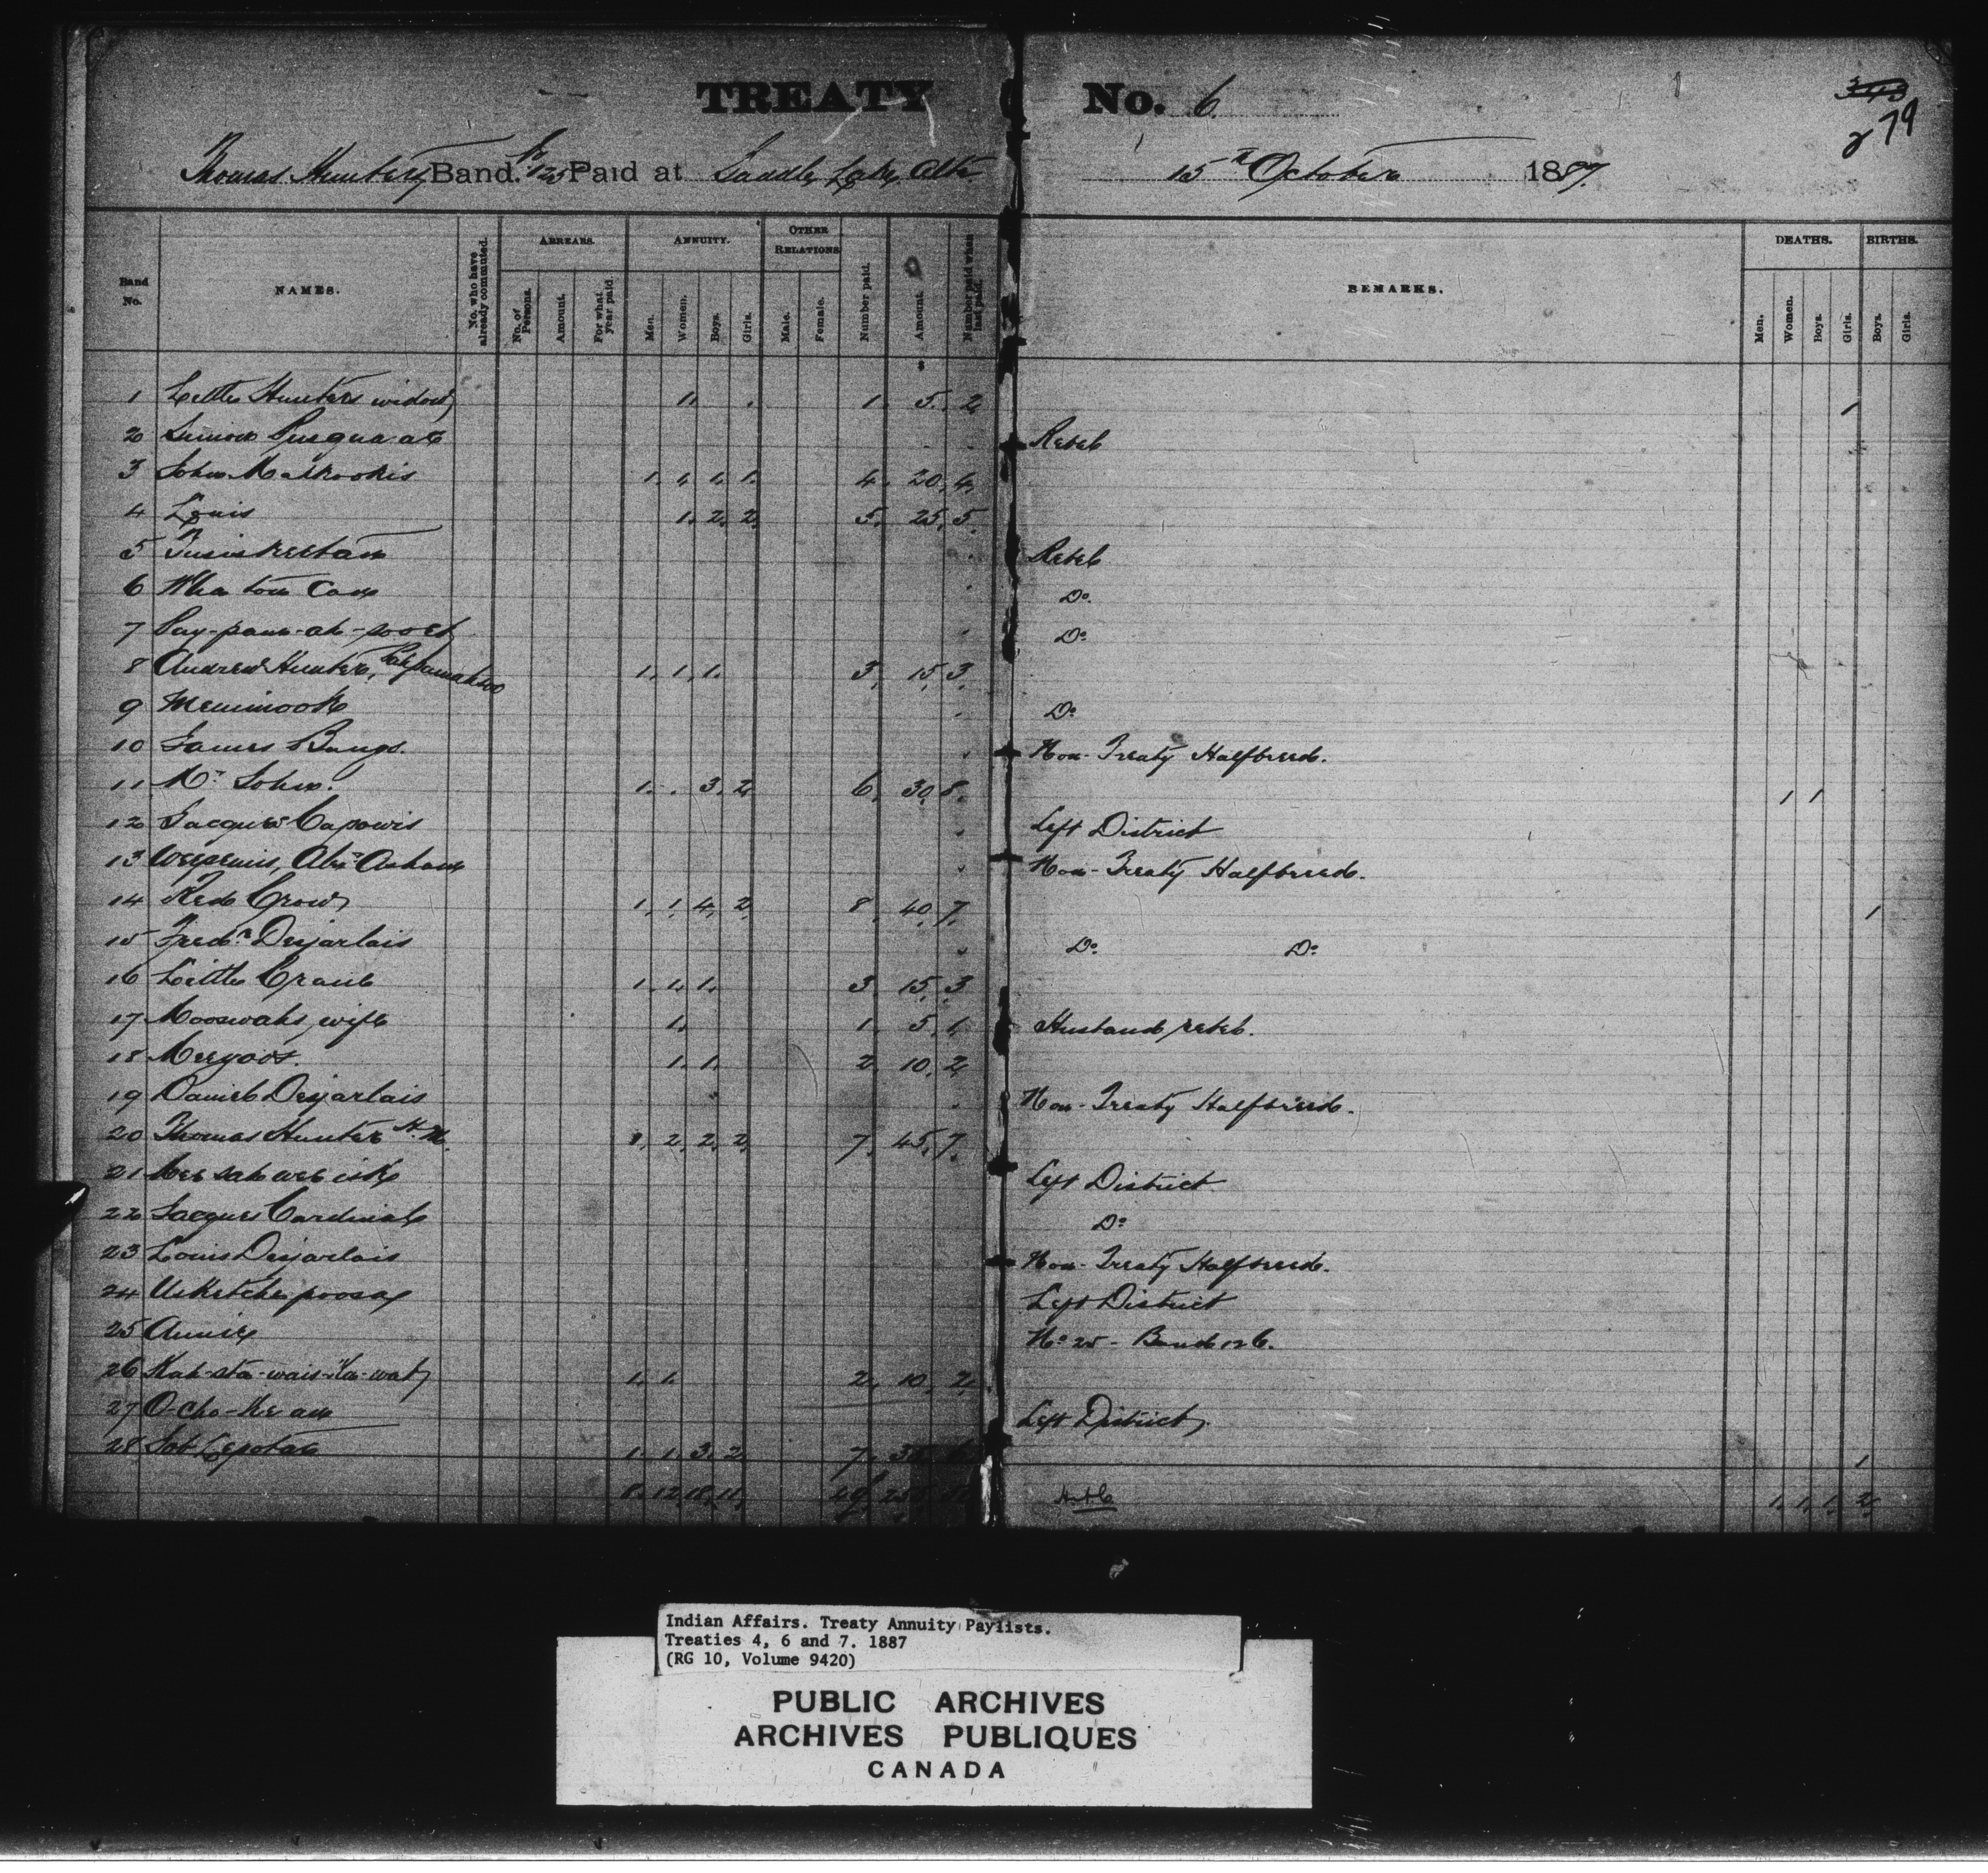 TREATY No. 6.
279
Thomas Hunter's Band. No. 125 Paid at Saddle Lake, Alta. 15th October 1887.
Band No. NAMES. No. who have already commuted. ARREARS. No. of Persons. Amount. For what year paid. ANNUITY. Men. Women. Boys. Girls. OTHER RELATIONS Male. Female. Number paid. Amount. Number paid when last paid. REMARKS. DEATHS. Men. Women. Boys. Girls. BIRTHS. Boys. Girls.
$
1 Little Hunters widow 1. 1. 5. 2 1
2 Rebel
3 John 1. 1. 1. 1. 4. 20. 4.
4 Louis 1. 2. 2. 5. 25. 5.
5 Rebel
6 Do.
7 Pay-pam-ah- Do.
8 Andrew Hunter, 1. 1. 1. 3. 15. 3.
9 Do.
10 James Bangs. Non-Treaty Halfbreed.
11 Mr. John. 1. . 3. 2. 6. 30. 8. 1 1
12 Jacques Capowis Left District
13 Non-Treaty Halfbreed.
14 Red Crow 1. 1. 4. 2. 8. 40. 7. 1
15 Fredk. Desjarlais Do. Do.
16 Little 1. 1. 1. 3. 15. 3
17 Mooswahs wife 1. 1. 5. 1. Husband rebel.
18 1. 1. 2. 10. 2
19 Daniel Desjarlais Non-Treaty Halfbreed.
20 Thomas Hunter H.M. 1. 2. 2. 2. 7. 45. 7.
21 Left District
22 Jacques Cardinal Do.
23 Louis Desjarlais Non-Treaty Halfbreed.
24 Left District
25 Annie No. 25 - Band 126.
26 Kah-sta-wais-ka-wat 1. 1. 2. 10. 2
27 O-cho- Left District.
28 1. 1. 3. 2. 7. 35. 6. 1
8. 12. 18. 11. 49. 1. 1. 1. 2.
Indian Affairs. Treaty Annuity Paylists.
Treaties 4, 6 and 7. 1887
(RG 10, Volume 9420)
PUBLIC ARCHIVES
ARCHIVES PUBLIQUES
CANADA